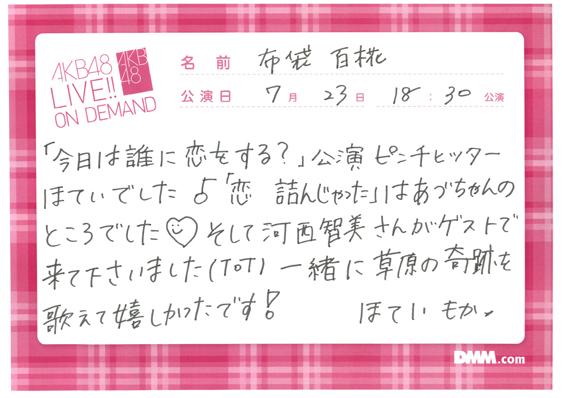 AKB48
LIVE!!
ON DEMAND
AKB
48
名前 布袋 百椛
公演日 7月 23日 18:30 公演
「今日は誰に恋をする?」公演 ピンチヒッター
ほていでした♪「恋 詰んじゃった」はあづちゃんの
ところでした♡ そして河西智美さんがゲストで
来て下さいました(ToT) 一緒に草原の奇跡を
歌えて嬉しかったです!
ほてい もか
DMM.com